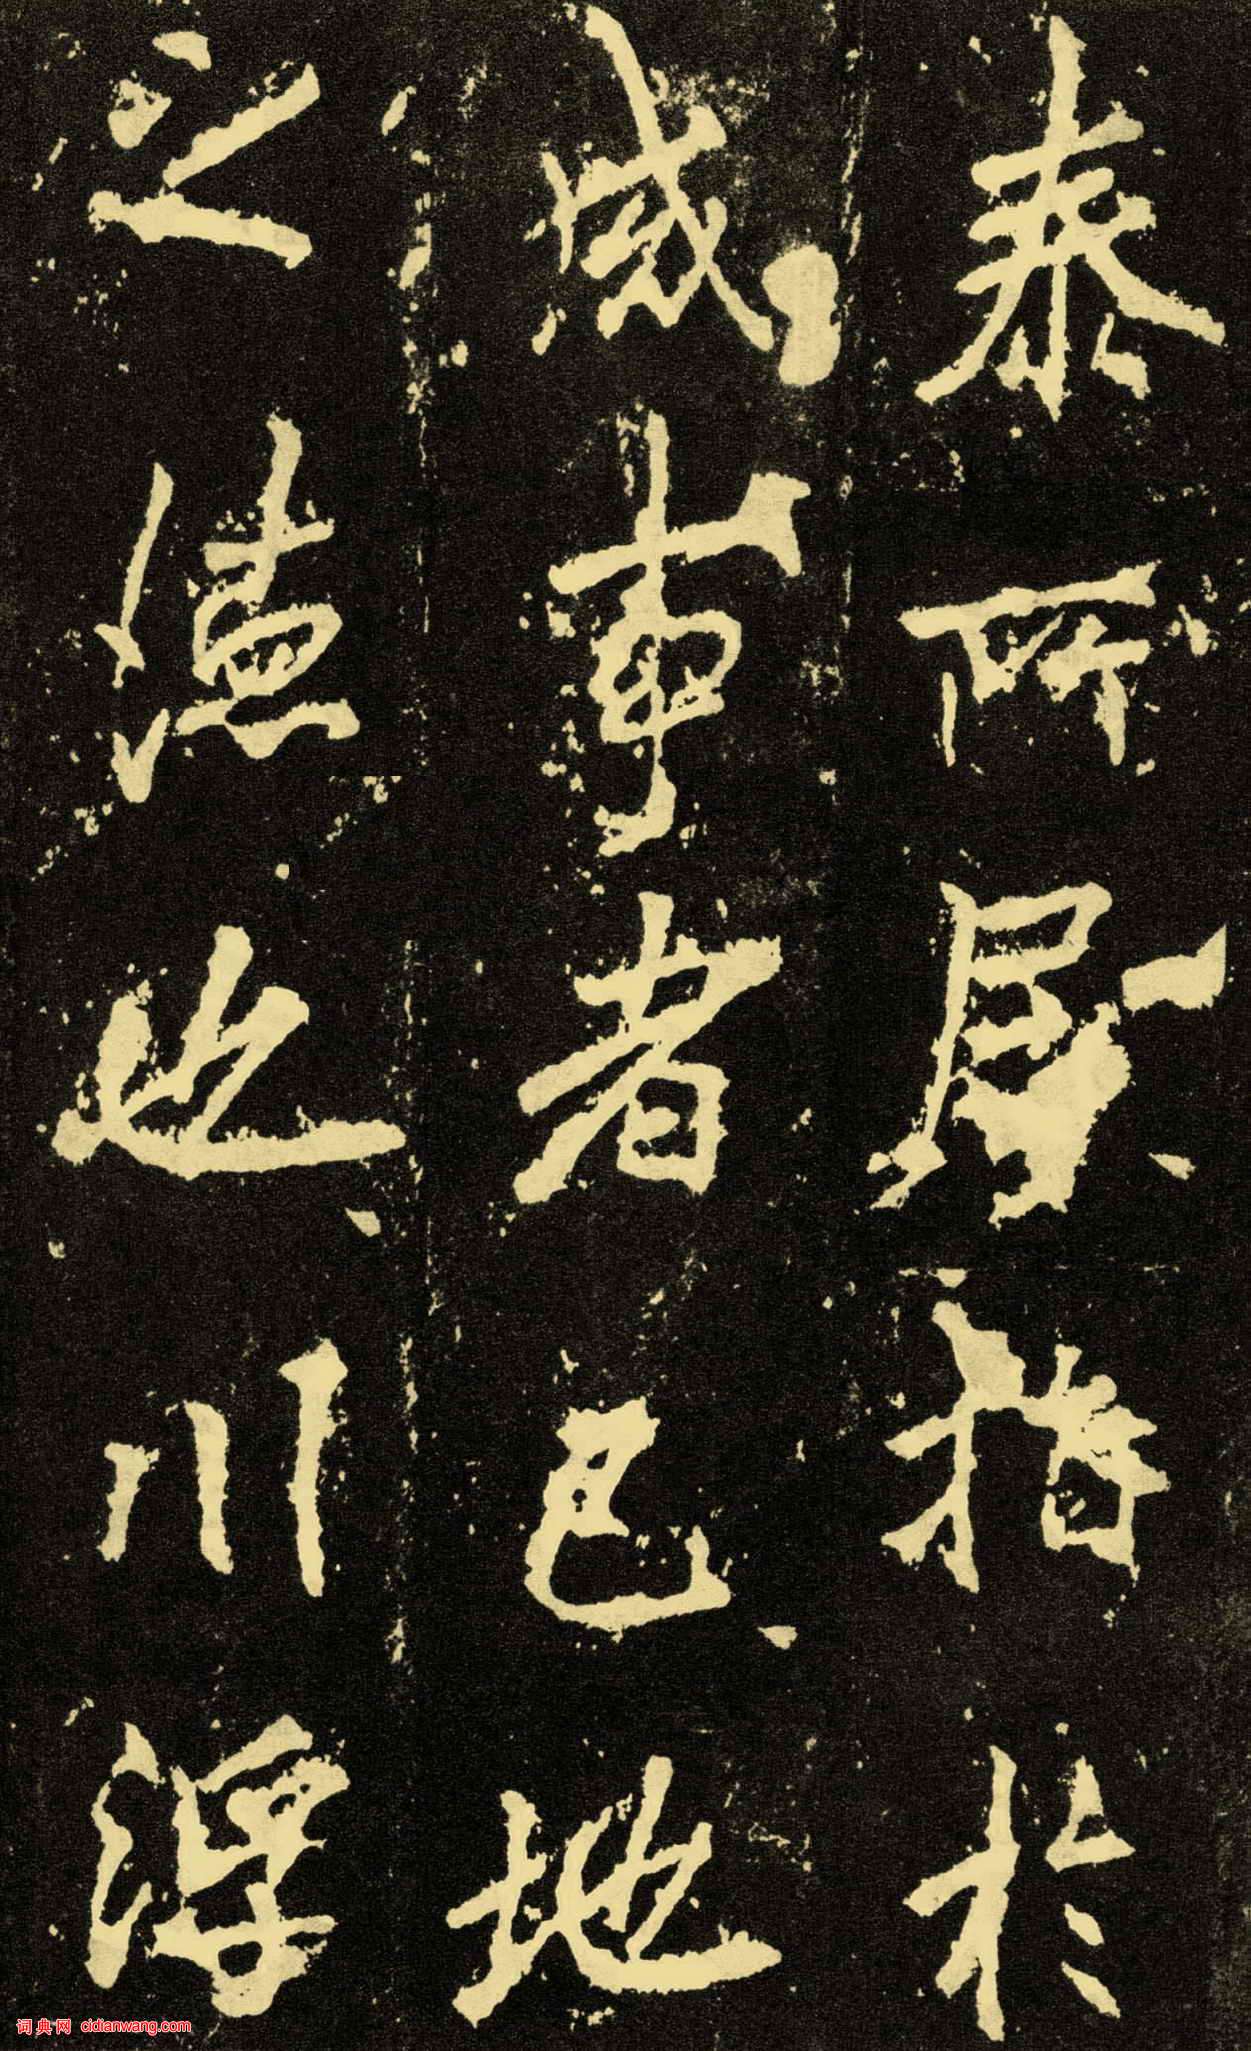 泰所居指於
成事者已地
之德也川浮
词典网 cidianwang.com